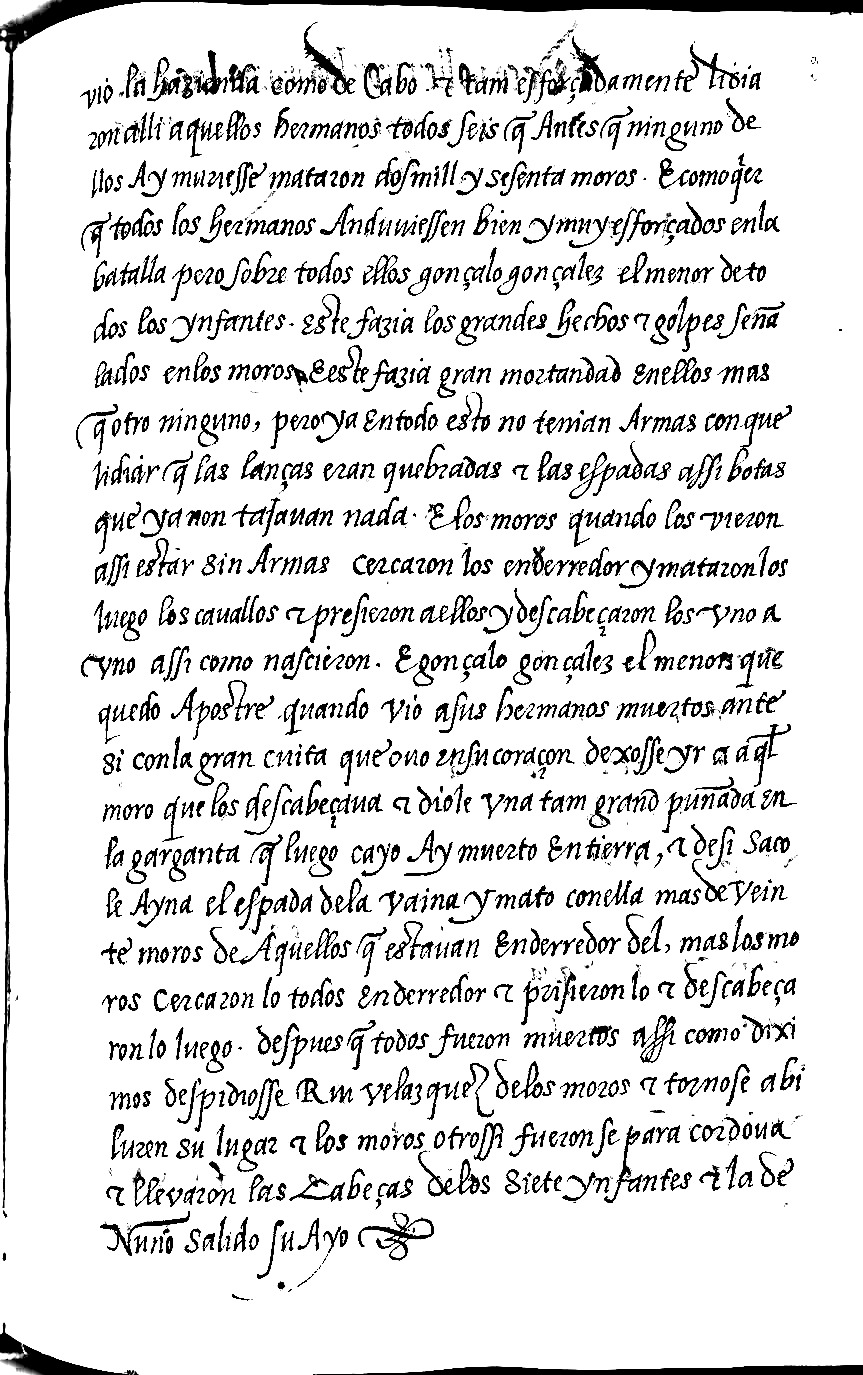 vio la hazienda como de Cabo ⁊ tam esforçadamente lidia
ron alli aquellos hermanos todos seis q̃ Antes q̃ ninguno de
llos Ay muriesse mataron dosmill y sesenta moros. E comoq̃er
q̃ todos los hermanos Anduuiessen bien y muy esforçados enla
batalla pero sobre todos ellos gonçalo gonçalez el menor de to
dos los ynfantes. Este fazia los grandes hechos ⁊ golpes señа
lados enlos moros. E este fazia gran mortandad Enellos mas
q̃ otro ninguno, pero ya Entodo esto no tenian Armas con que
lidiar q̃ las lanças eran quebradas ⁊ las espadas assi botas
que ya non tajauan nada. E los moros quando los vieron
assi estar Sin Armas cercaron los enderredor y mataron los
luego los cauallos ⁊ presieron aellos y descabeçaron los vno a
vno assi como nascieron. E gonçalo gonçalez el menor que
quedo Apostre quando vio asus hermanos muertos ante
Si conla gran cuita que ouo ensu coraçon dexosse yr a aql̃
moro que los descabeçaua ⁊ diole vna tam grand puñada En
la garganta q̃ luego cayo Ay muerto Entierra, ⁊ desi Saco
le Ayna el espada dela vaina y mato conella mas de vein
te moros de Aquellos q̃ estauan Enderredor del, mas los mo
ros cercaron lo todos Enderredor ⁊ prisieron lo ⁊ descabeça
ron lo luego. despues q̃ todos fueron muertos assi como dixi
mos despidiosse Rui velazquez delos moros ⁊ tornose a bi
luren su lugar ⁊ los moros otrossi fueron se para cordoua
⁊ llevaron las Cabeças delos Siete ynfantes ⁊ la de
Nuño Salido su Ayo